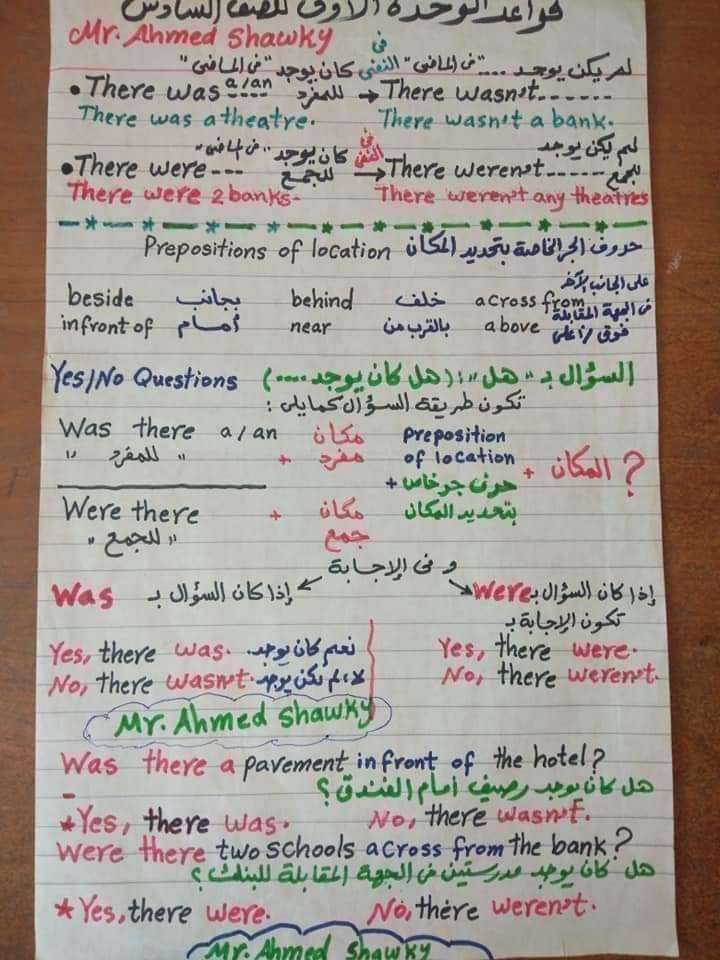 قواعد الوحدة الأولى للصف السادس
Mr. Ahmed Shawky
لم يكن يوجد .... "فى الماضى" فى النفى كان يوجد "فى الماضى"
• There was a/an ---- للمفرد → There wasn't ------
There was a theatre. There wasn't a bank.
لم يكن يوجد فى النفى كان يوجد "فى الماضى"
• There were --- للجمع → There weren't ------ للجمع
There were 2 banks. There weren't any theatres
Prepositions of location حروف الجر الخاصة بتحديد المكان
على الجانب الآخر
beside بجانب behind خلف across from فى الجهة المقابلة
infront of أمام near بالقرب من above فوق / أعلى
Yes/No Questions السؤال بـ "هل" : (هل كان يوجد ....)
تكون طريقة السؤال كما يلى :
Was there a/an مكان preposition
" للمفرد " + مفرد of location + المكان ?
حرف جر خاص +
Were there + مكان بتحديد المكان
" للجمع " جمع
و فى الإجابة
Was إذا كان السؤال بـ إذا كان السؤال بـ Were
تكون الإجابة بـ
Yes, there was. نعم كان يوجد Yes, there were.
No, there wasn't. لا، لم يكن يوجد No, there weren't.
Mr. Ahmed Shawky
Was there a pavement infront of the hotel?
هل كان يوجد رصيف أمام الفندق ؟
* Yes, there was. No, there wasn't.
Were there two schools across from the bank?
هل كان يوجد مدرستين فى الجهة المقابلة للبنك ؟
* Yes, there were. No, there weren't.
Mr. Ahmed Shawky